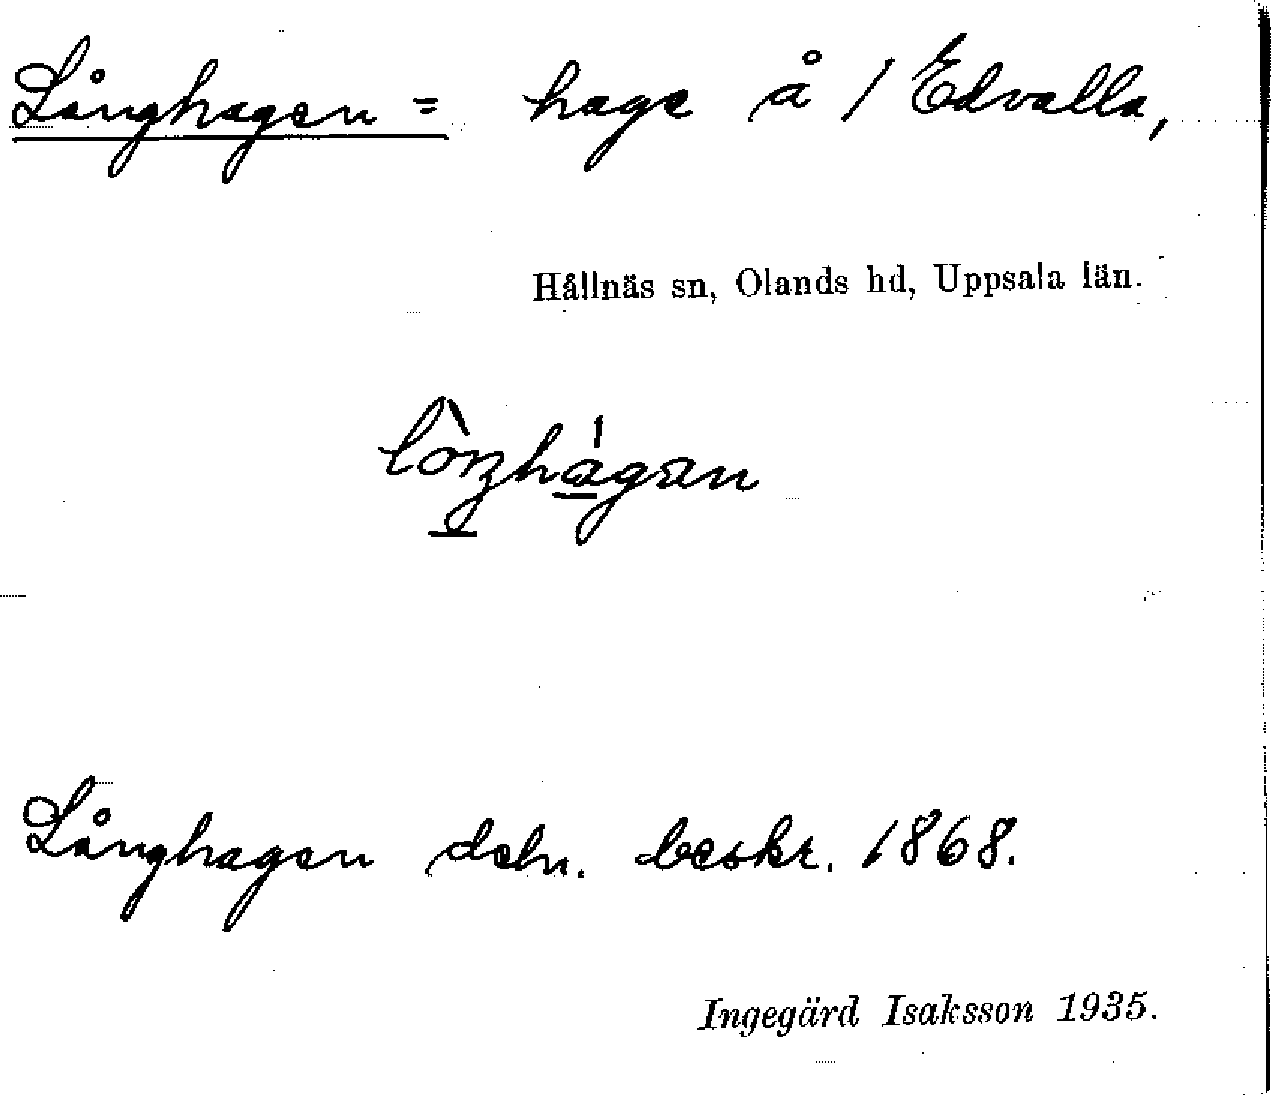 Långhagen = hage å 1 Edvalla,
Hållnäs sn, Olands hd, Uppsala län.
Långhagen deln. beskr. 1868.
Ingegärd Isaksson 1935.